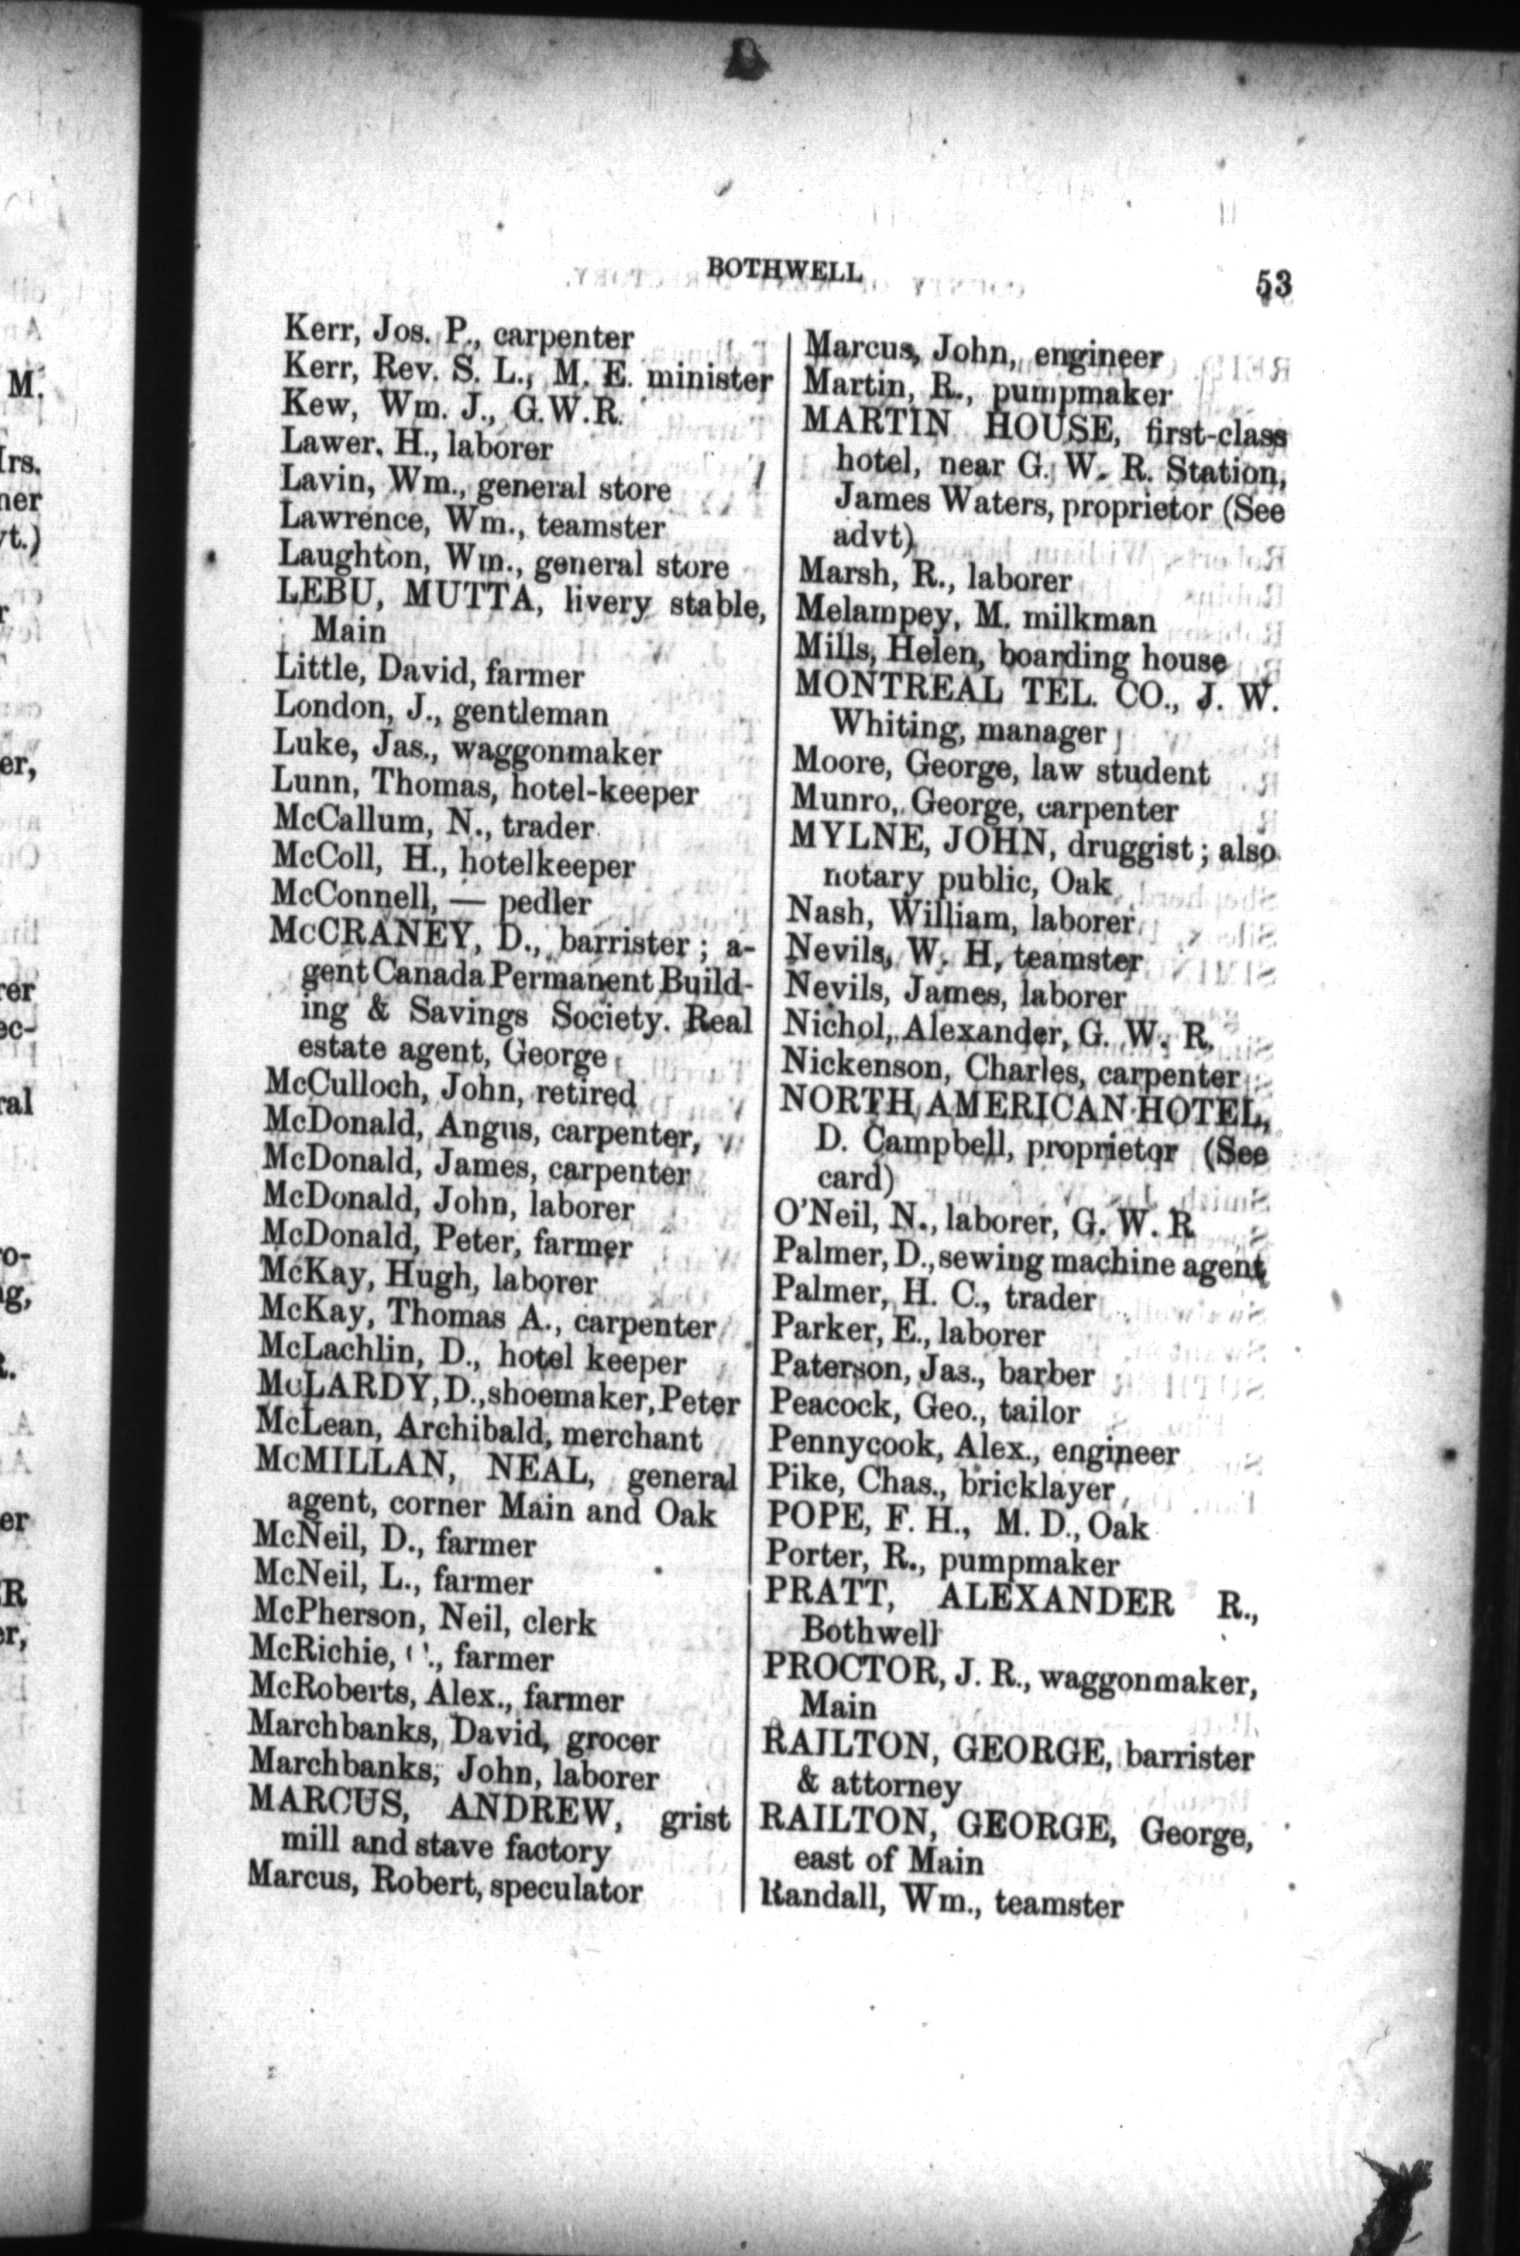 BOTHWELL
53
Kerr, Jos. P., carpenter
Kerr, Rev. S. L., M. E. minister
Kew, Wm. J., G.W.R.
Lawer, H., laborer
Lavin, Wm., general store
Lawrence, Wm., teamster
Laughton, Wm., general store
LEBU, MUTTA, livery stable,
Main
Little, David, farmer
London, J., gentleman
Luke, Jas., waggonmaker
Lunn, Thomas, hotel-keeper
McCallum, N., trader
McColl, H., hotelkeeper
McConnell, — pedler
McCRANEY, D., barrister ; a-
gent Canada Permanent Build-
ing & Savings Society. Real
estate agent, George
McCulloch, John, retired
McDonald, Angus, carpenter,
McDonald, James, carpenter
McDonald, John, laborer
McDonald, Peter, farmer
McKay, Hugh, laborer
McKay, Thomas A., carpenter
McLachlin, D., hotel keeper
McLARDY, D., shoemaker, Peter
McLean, Archibald, merchant
McMILLAN, NEAL, general
agent, corner Main and Oak
McNeil, D., farmer
McNeil, L., farmer
McPherson, Neil, clerk
McRichie, farmer
McRoberts, Alex., farmer
Marchbanks, David, grocer
Marchbanks, John, laborer
MARCUS, ANDREW, grist
mill and stave factory
Marcus, Robert, speculator
Marcus, John, engineer
Martin, R., pumpmaker
MARTIN HOUSE, first-class
hotel, near G. W. R. Station,
James Waters, proprietor (See
advt)
Marsh, R., laborer
Melampey, M. milkman
Mills, Helen, boarding house
MONTREAL TEL. CO., J. W.
Whiting, manager
Moore, George, law student
Munro, George, carpenter
MYLNE, JOHN, druggist ; also
notary public, Oak
Nash, William, laborer
Nevils, W. H, teamster
Nevils, James, laborer
Nichol, Alexander, G. W. R.
Nickenson, Charles, carpenter
NORTH AMERICAN HOTEL,
D. Campbell, proprietor (See
card)
O'Neil, N., laborer, G. W. R
Palmer, D., sewing machine agent
Palmer, H. C., trader
Parker, E., laborer
Paterson, Jas., barber
Peacock, Geo., tailor
Pennycook, Alex., engineer
Pike, Chas., bricklayer
POPE, F. H., M. D., Oak
Porter, R., pumpmaker
PRATT, ALEXANDER R.,
Bothwell
PROCTOR, J. R., waggonmaker,
Main
RAILTON, GEORGE, barrister
& attorney
RAILTON, GEORGE, George,
east of Main
Randall, Wm., teamster